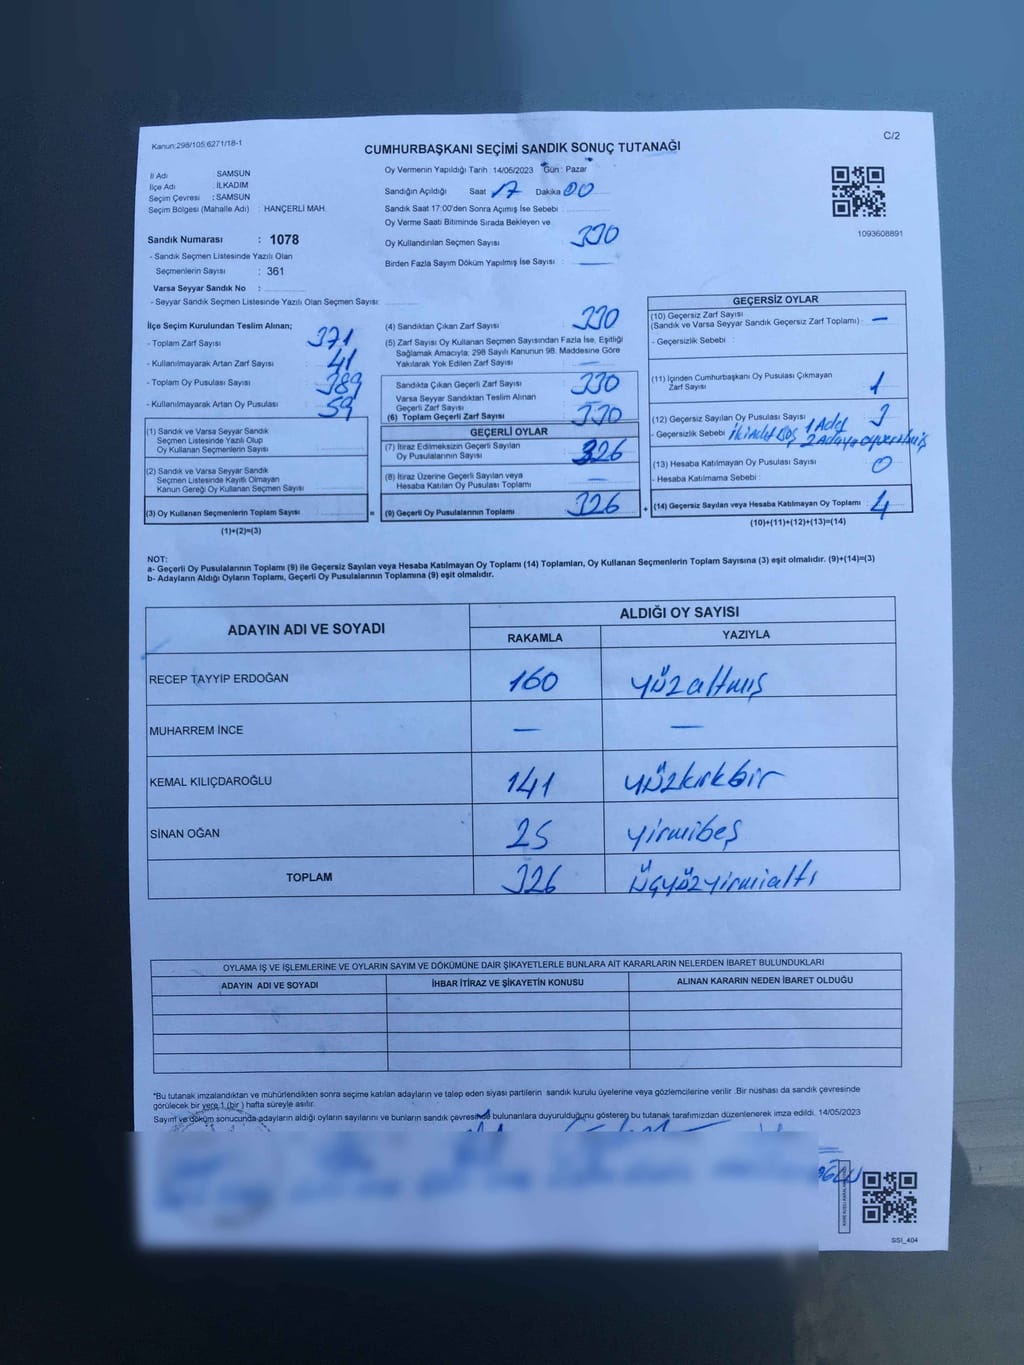 Kanun:298/105;6271/18-1
C/2
CUMHURBAŞKANI SEÇİMİ SANDIK SONUÇ TUTANAĞI
İl Adı : SAMSUN
İlçe Adı : İLKADIM
Seçim Çevresi : SAMSUN
Seçim Bölgesi (Mahalle Adı) : HANÇERLİ MAH.
Sandık Numarası : 1078
- Sandık Seçmen Listesinde Yazılı Olan
Seçmenlerin Sayısı : 361
Varsa Seyyar Sandık No :
- Seyyar Sandık Seçmen Listesinde Yazılı Olan Seçmen Sayısı:
Oy Vermenin Yapıldığı Tarih : 14/05/2023 Gün : Pazar
Sandığın Açıldığı Saat 17 Dakika 00
Sandık Saat 17:00'den Sonra Açımış İse Sebebi :
Oy Verme Saati Bitiminde Sırada Bekleyen ve
Oy Kullandırılan Seçmen Sayısı : 330
Birden Fazla Sayım Döküm Yapılmış İse Sayısı :
1093608891
İlçe Seçim Kurulundan Teslim Alınan;
- Toplam Zarf Sayısı : 371
- Kullanılmayarak Artan Zarf Sayısı : 41
- Toplam Oy Pusulası Sayısı : 389
- Kullanılmayarak Artan Oy Pusulası : 59
(1) Sandık ve Varsa Seyyar Sandık
Seçmen Listesinde Yazılı Olup
Oy Kullanan Seçmenlerin Sayısı :
(2) Sandık ve Varsa Seyyar Sandık
Seçmen Listesinde Kayıtlı Olmayan
Kanun Gereği Oy Kullanan Seçmen Sayısı :
(3) Oy Kullanan Seçmenlerin Toplam Sayısı : =
(1)+(2)=(3)
(4) Sandıktan Çıkan Zarf Sayısı : 330
(5) Zarf Sayısı Oy Kullanan Seçmen Sayısından Fazla İse, Eşitliği
Sağlamak Amacıyla; 298 Sayılı Kanunun 98. Maddesine Göre
Yakılarak Yok Edilen Zarf Sayısı :
Sandıkta Çıkan Geçerli Zarf Sayısı : 330
Varsa Seyyar Sandıktan Teslim Alınan
Geçerli Zarf Sayısı :
(6) Toplam Geçerli Zarf Sayısı : 330
GEÇERLİ OYLAR
(7) İtiraz Edilmeksizin Geçerli Sayılan
Oy Pusulalarının Sayısı : 326
(8) İtiraz Üzerine Geçerli Sayılan veya
Hesaba Katılan Oy Pusulası Toplamı :
(9) Geçerli Oy Pusulalarının Toplamı : 326 +
GEÇERSİZ OYLAR
(10) Geçersiz Zarf Sayısı
(Sandık ve Varsa Seyyar Sandık Geçersiz Zarf Toplamı) : —
- Geçersizlik Sebebi :
(11) İçinden Cumhurbaşkanı Oy Pusulası Çıkmayan
Zarf Sayısı : 1
(12) Geçersiz Sayılan Oy Pusulası Sayısı : 3
- Geçersizlik Sebebi : İki Adet Boş 1 Adet
2 Adaya oy verilmiş
(13) Hesaba Katılmayan Oy Pusulası Sayısı : 0
- Hesaba Katılmama Sebebi :
(14) Geçersiz Sayılan veya Hesaba Katılmayan Oy Toplamı : 4
(10)+(11)+(12)+(13)=(14)
NOT:
a- Geçerli Oy Pusulalarının Toplamı (9) ile Geçersiz Sayılan veya Hesaba Katılmayan Oy Toplamı (14) Toplamları, Oy Kullanan Seçmenlerin Toplam Sayısına (3) eşit olmalıdır. (9)+(14)=(3)
b- Adayların Aldığı Oyların Toplamı, Geçerli Oy Pusulalarının Toplamına (9) eşit olmalıdır.
ADAYIN ADI VE SOYADI
ALDIĞI OY SAYISI
RAKAMLA YAZIYLA
RECEP TAYYİP ERDOĞAN 160 yüzaltmış
MUHARREM İNCE — —
KEMAL KILIÇDAROĞLU 141 yüzkırkbir
SİNAN OĞAN 25 yirmibeş
TOPLAM 326 üçyüzyirmialtı
OYLAMA İŞ VE İŞLEMLERİNE VE OYLARIN SAYIM VE DÖKÜMÜNE DAİR ŞİKAYETLERLE BUNLARA AİT KARARLARIN NELERDEN İBARET BULUNDUKLARI
ADAYIN ADI VE SOYADI İHBAR İTİRAZ VE ŞİKAYETİN KONUSU ALINAN KARARIN NEDEN İBARET OLDUĞU
*Bu tutanak imzalandıktan ve mühürlendikten sonra seçime katılan adayların ve talep eden siyasi partilerin sandık kurulu üyelerine veya gözlemcilerine verilir .Bir nüshası da sandık çevresinde
görülecek bir yere 1 (bir ) hafta süreyle asılır.
Sayım ve döküm sonucunda adayların aldığı oyların sayılarını ve bunların sandık çevresinde bulunanlara duyurulduğunu gösteren bu tutanak tarafımızdan düzenlenerek imza edildi. 14/05/2023
SSI_404